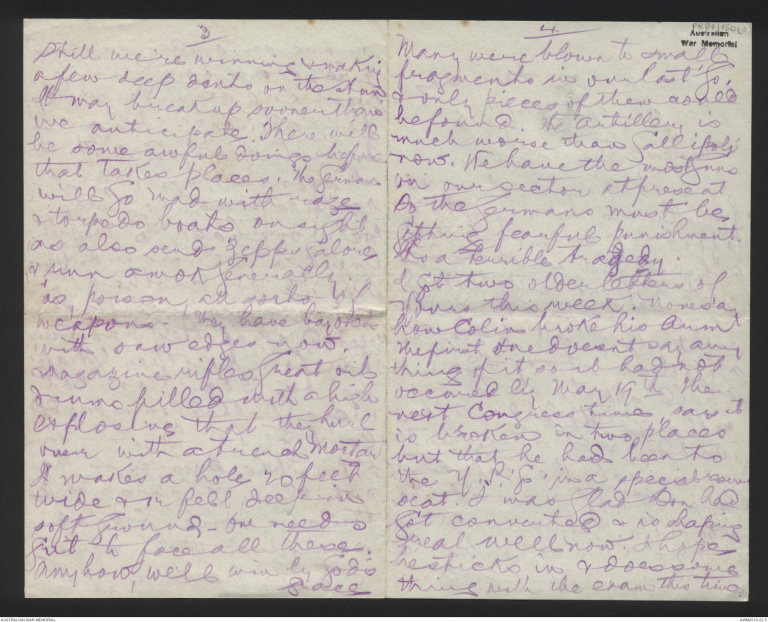 3
Still we're winning & making
a few deep dents on the
It may break up sooner than
we anticipate. There will
be some awful doings before
that takes place. The Germans
will go mad with rage
& torpedo boats on sight
as also send Zepps along
& run amok generally
Gas, poison, all sorts of
weapons. They have bayonets
with saw edges now.
Magazine rifles, great oil
drums filled with a high
explosive that they hurl
over with a trench mortar
It makes a hole 20 feet
wide & feet deep in
soft ground. One needs
grit to face all these.
Anyhow, we'll win by God's
grace
4
Australian
War Memorial
Many were blown to small
fragments in our last "go",
& only pieces of them could
be found. The artillery is
much worse than Gallipoli
now. We have the most guns
on our sector at present
So the Germans must be
getting fearful punishment.
It's a terrible tragedy.
I got two older letters of
yours this week. You say
how Colin broke his arm
The first one doesn't say any
thing of it so it had not
occurred by May 19th. The
next Congress time, says it
is broken in two places
but that he had been to
the Y.P.'s in a special
seat. I was glad Don had
got converted & is shaping
real well now. I hope
he sticks in & does some
thing with the exam this time
AUSTRALIAN WAR MEMORIAL